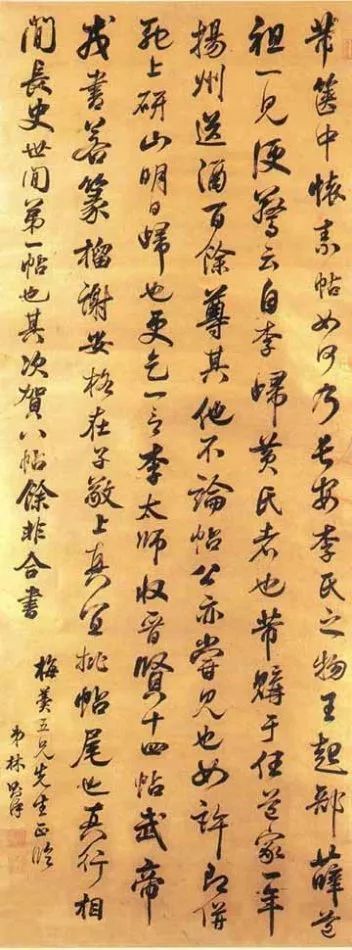 芾篋中懷素帖如何乃長安李氏之物王起部薛道
祖一見便驚云自李歸黃氏者也芾購于任道家一年
揚州送酒百餘尊其他不論帖公亦嘗見也如許即併
馳上研山明日歸也更乞一言李太師收晉賢十四帖武帝
戎書若篆籀謝安格在子敬上真宜批帖尾也真行相
間長史世間第一帖也其次賀八帖餘非合書
梅羹五兄先生正臨
弟林